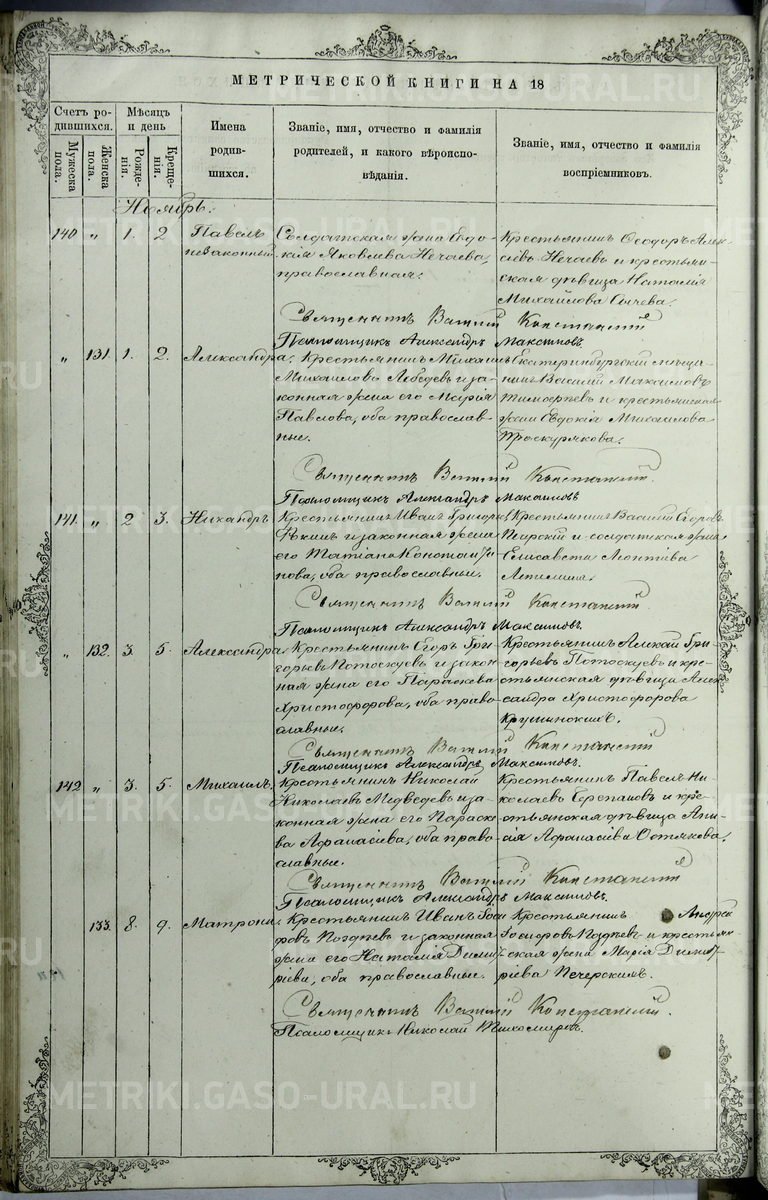 МЕТРИЧЕСКОЙ КНИГИ НА 18
Счетъ ро-
дившихся.
Мужеска
пола.
Женска
пола.
Мѣсяцъ
и день
Рожде-
нія.
Креще-
нія.
Имена
родив-
шихся.
Званіе, имя, отчество и фамилія
родителей, и какого вѣроиспо-
вѣданія.
Званіе, имя, отчество и фамилія
воспріемниковъ.
Ноябрь.
140 „ 1. 2 Павелъ
незаконный
Солдатская жена Евдо-
кія Яковлева Нечаева,
православная.
Крестьянинъ Ѳеодоръ Алек-
сѣевъ Нечаевъ и крестьян-
ская дѣвица Наталія
Михайлова Сычева.
Священникъ
Псаломщикъ Александръ Максимовъ.
„ 131. 1. 2. Александра.
Крестьянинъ Михаилъ
Михаиловъ Лебедевъ и за-
конная жена его Марія
Павлова, оба православ-
ные.
Екатеринбургскій мѣща-
нинъ Василій Максимовъ
и крестьянская
жена Евдокія Михаилова
Проскурякова.
Священникъ
Псаломщикъ Александръ Максимовъ
141. „ 2 3. Никандръ
Крестьянинъ Иванъ Григорьевъ
и законная жена
его Татіана Констан-
нова, оба православные.
Крестьянинъ Василій Егоровъ
и солдатская жена
Елисавета Леонтіева
Священникъ
Псаломщикъ Александръ Максимовъ.
„ 132. 3. 5. Александра
Крестьянинъ Егоръ Гри-
горьевъ Потоскуевъ и закон-
ная жена его Параскева
Христофорова, оба право-
славные.
Крестьянинъ Алексѣй Гри-
горьевъ Потоскуевъ и кре-
стьянская дѣвица Алек-
сандра Христофорова
Священникъ
Псаломщикъ Александръ Максимовъ.
142 „ 3. 5. Михаилъ.
Крестьянинъ Николай
Николаевъ Медведевъ и за-
конная жена его Параске-
ва Афанасіева, оба право-
славные.
Крестьянинъ Павелъ Ни-
колаевъ Черепановъ и кре-
стьянская дѣвица Ани-
сія Афанасіева Остякова.
Священникъ
Псаломщикъ Александръ Максимовъ.
133. 8. 9. Матрона.
Крестьянинъ Иванъ
Позднѣевъ и законная
жена его Наталія Димит-
ріева, оба православные.
Крестьянинъ Андрей
и крестьян-
ская жена Марія Димит-
ріева Печерскихъ.
Священникъ
Псаломщикъ Николай Тихомировъ.
METRIKI.GASO-URAL.RU